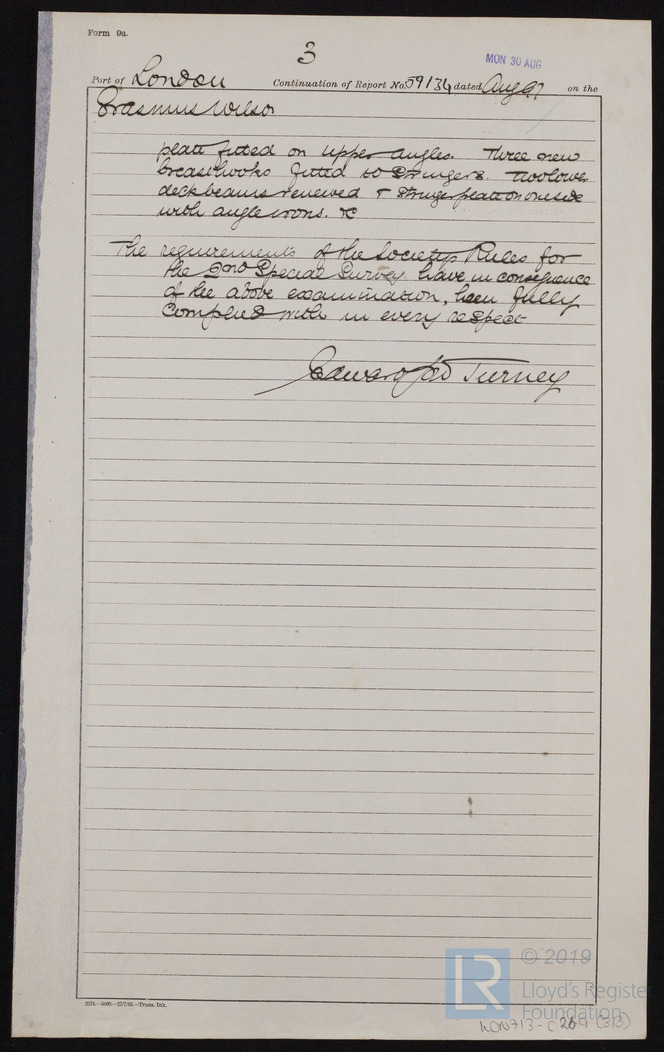 Form 9a.
3
MON 30 AUG
Port of London Continuation of Report No. 59134 dated Aug 97 on the
Erasmus Wilson
plate fitted on upper angles. Three new
breasthooks fitted to Stringers. Two lower
deck beams renewed & Stringer plate on one side
with angle irons. &c
The requirements of the Society's Rules for
the 2nd Special Survey have in consequence
of the above examination, been fully
complied with in every respect
Edward Turney
© 2019
LR
Lloyd's Register
Foundation
LON713-C269 (3/3)